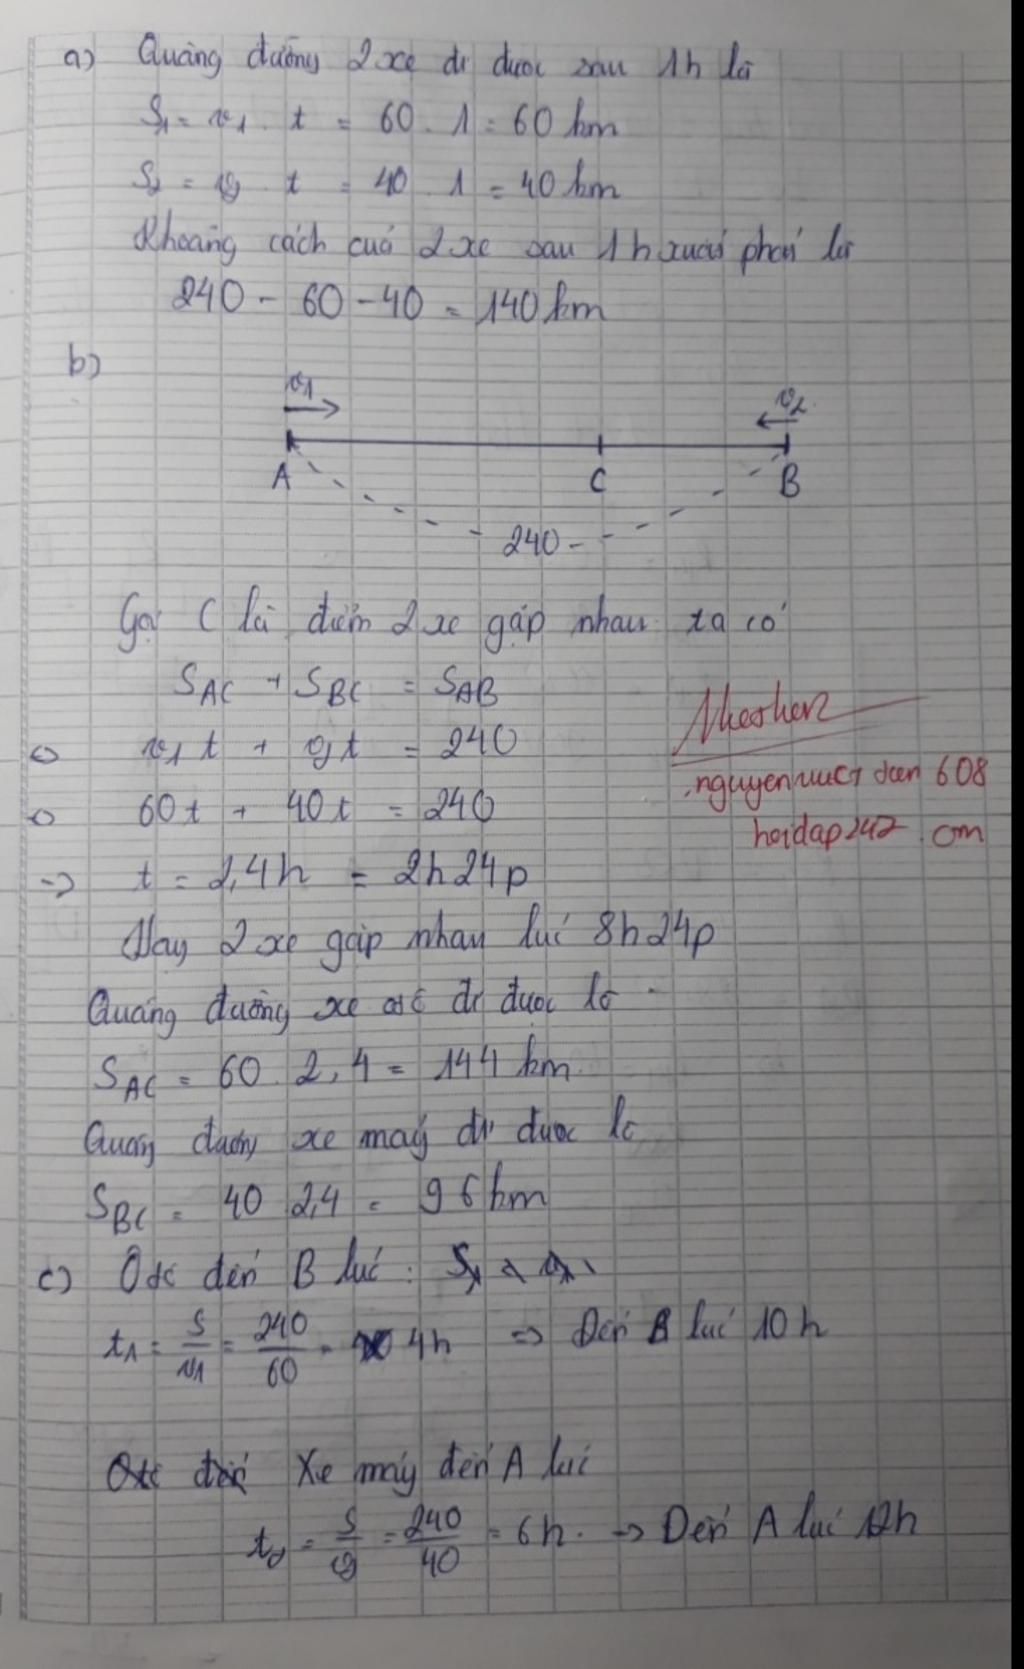 a) Quãng đường 2 xe đi được sau 1h là
S₁ = v₁ . t = 60 . 1 = 60 km
S₂ = v₂ . t = 40 . 1 = 40 km
Khoảng cách của 2 xe sau 1h xuất phát là
240 - 60 - 40 = 140 km
b)
v₁ v₂
A C B
240
Gọi C là điểm 2 xe gặp nhau ta có
S_AC + S_BC = S_AB
⇔ v₁t + v₂t = 240
⇔ 60t + 40t = 240
nguyen 608
hoidap247 .com
=> t = 2,4h = 2h24p
Vay 2 xe gặp nhau lúc 8h24p
Quãng đường xe ôtô đi được là
S_AC = 60 . 2,4 = 144 km
Quãng đường xe máy đi được là
S_BC = 40 2,4 = 96 km
c) Ôtô đến B lúc :
t₁ = S/v₁ = 240/60 = 4h => Đến B lúc 10h
Xe máy đến A lúc
t₂ = S/v₂ = 240/40 = 6h . -> Đến A lúc 12h